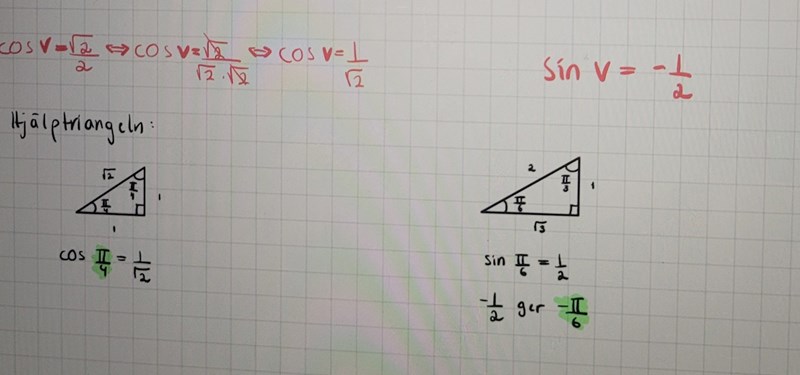 cos v = √2/2 ⇔ cos v = √2/(√2·√2) ⇔ cos v = 1/√2
sin v = -1/2
Hjälptriangeln:
√2 π/4 π/4 1 1
cos π/4 = 1/√2
2 π/6 π/3 1 √3
sin π/6 = 1/2
-1/2 ger -π/6